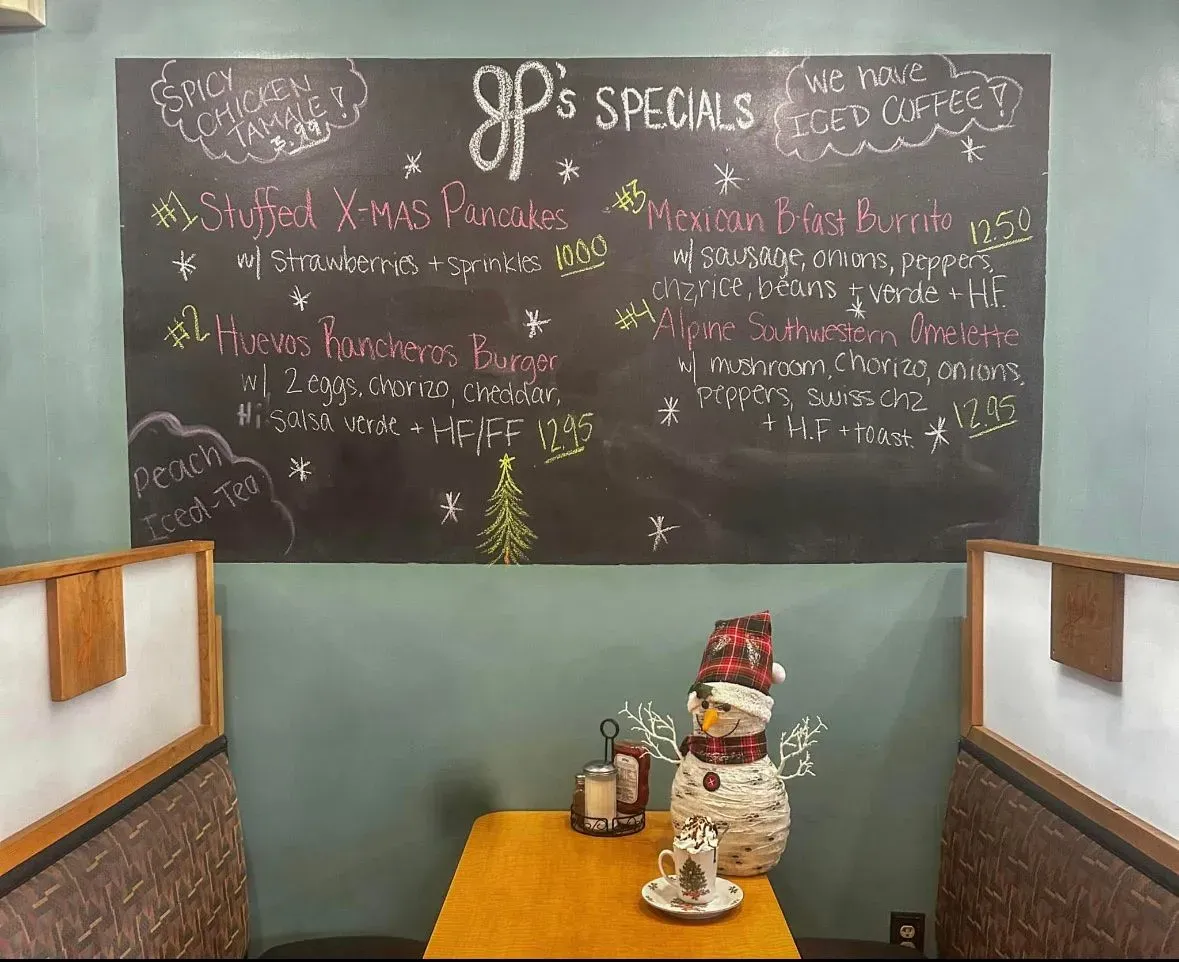 SPICY
CHICKEN
TAMALE!
3.99
JP's SPECIALS
we have
ICED COFFEE!
#1 Stuffed X-MAS Pancakes
w/ strawberries + sprinkles 10.00
#2 Huevos Rancheros Burger
w/ 2 eggs, chorizo, cheddar,
Hi! salsa verde + HF/FF 12.95
#3 Mexican B-fast Burrito 12.50
w/ sausage, onions, peppers,
chz, rice, beans + verde + H.F.
#4 Alpine Southwestern Omelette
w/ mushroom, chorizo, onions,
peppers, swiss chz 12.95
+ H.F + toast
Peach
Iced-Tea